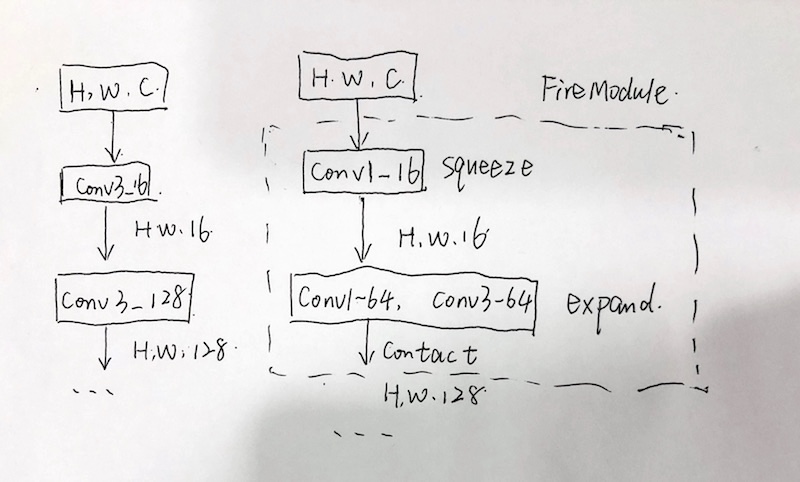 H, W, C.
Conv3_16
H W.16
Conv3_128
H,W,128.
...
H. W, C.
FireModule.
Conv1_16
Squeeze
H,W.16
Conv1-64, Conv3-64
expand.
Contact
H,W.128
...